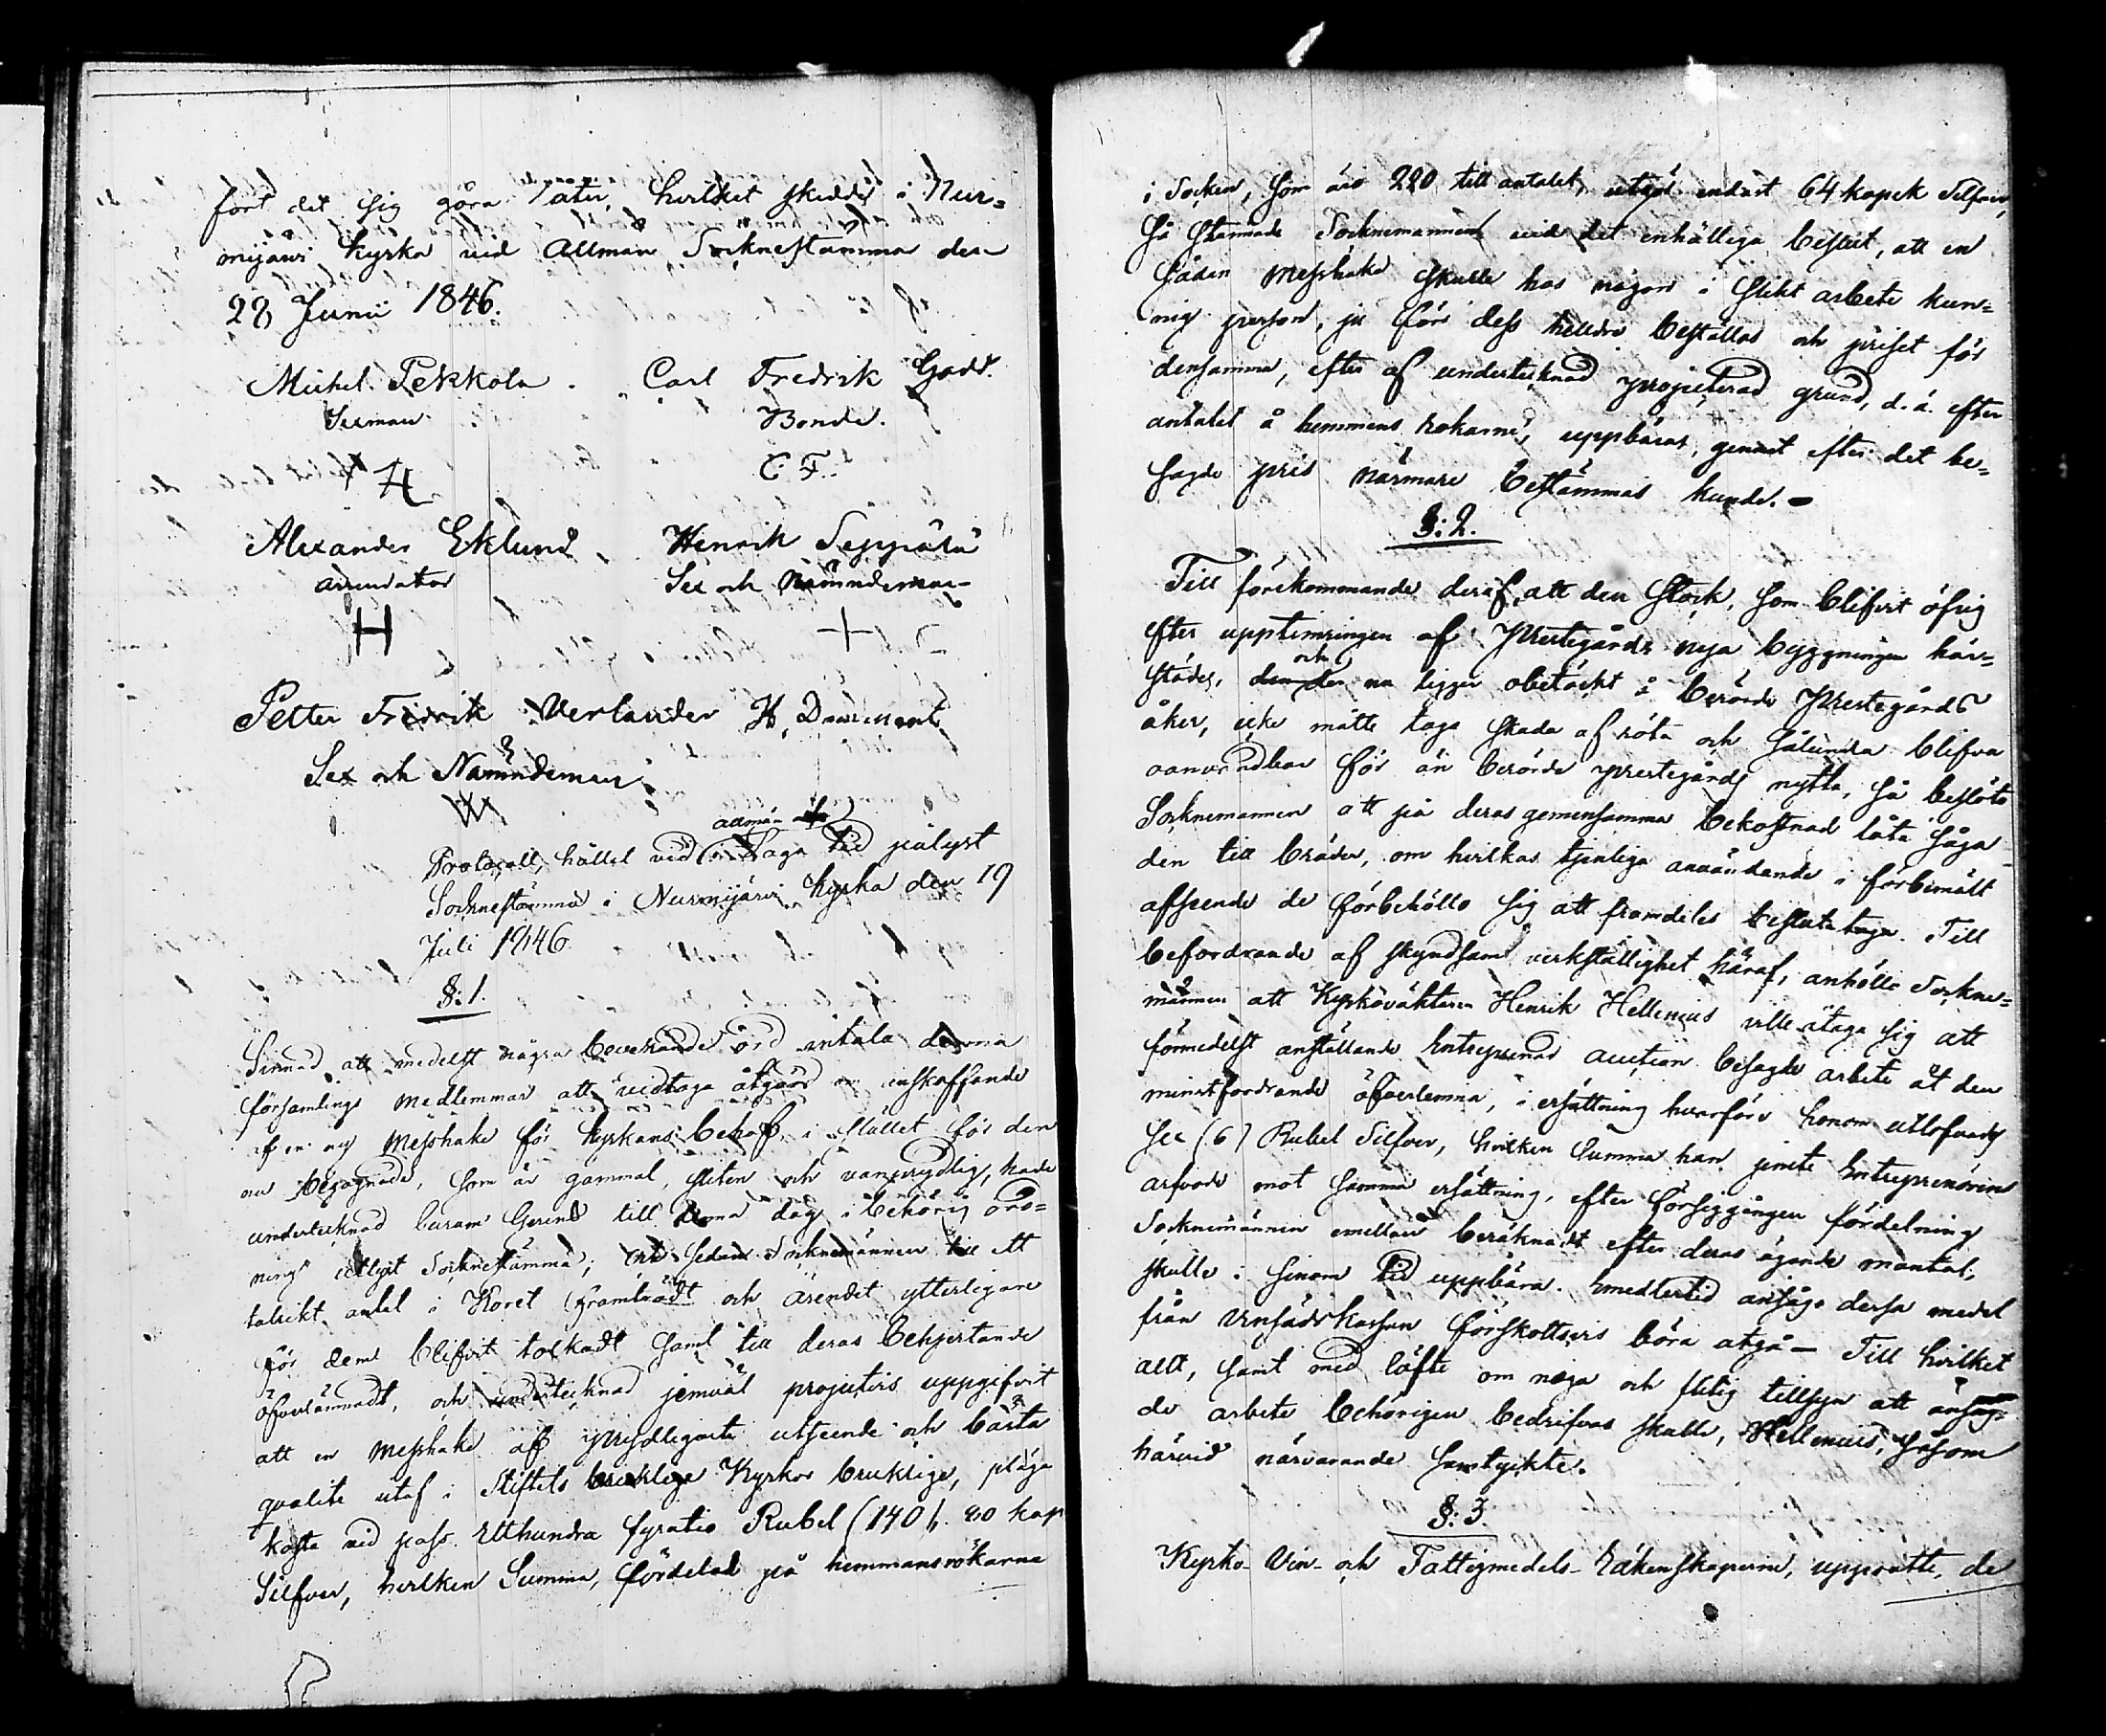 fort det sig göra låter, hvilket skedde i Nur=
mijärvi Kyrka vid Allmän Socknestämma den
28 Junii 1846.
Michel Pekkola. Carl Fredrik Gadd.
Sexman Bonde.
C. F.
Alexander Eklund Henrik Seppälä
arrendator Sex och Nämndeman
H +
Petter Fredrik Verlander H. Danement
Sex och Nämndeman
W
allmän
Protocoll, hållet vid i laga tid pålyst
Socknestämma i Nurmijärvi Kyrka den 19
Juli 1846.
§: 1.
Sinnad att medelst några bevekande ord antala denna
församlings medlemmar att vidtaga åtgärd om anskaffande
af en ny Messhake för kyrkans behof, i stället för den
nu begagnade, som är gammal, sliten och vanprydlig, hade
undertecknad berame till denna dag i behörig ord=
ning utlyst Socknestämma; och sedan Socknemännen till ett
talrikt antal i Koret framträdt och ärendet ytterligare
för dem blifvit tolkadt samt till deras behjertande
öfverlämnadt, och undertecknad jemväl projectvis uppgifvit
att en messhake af prydligaste utseende och bästa
qvalité utaf i Stiftets Kyrkor bruklige, pläga
kosta vid pass Etthundra fyratio Rubel (140) kop
Silfver, hvilken Summa, fördelad på hemmansrökarna
i Socken, som äro 220 till antalet, utgör endast 64 kopek Silfver,
Så stannade Socknemännen vid det enhälliga beslut, att en
sådan messhake skulle hos någon i slikt arbete kun=
nig person, ju för dess helldre beställas och priset för
densamma, efter af undertecknad projecterad grund, d. ä. efter
antalet å hemmans rökarne, uppbäras, genast efter det be=
sagde pris närmare bestämmas kunde. –
§: 2.
Till förekommande deraf, att den Stock, som blifvit öfrig
efter upptimringen af Prestegårds nya byggningen här=
städes, och
nu ligger obetäckt å berörde Prestegårds
åker, icke måtte taga skada af röta och sålunda blifva
oanvändbar för än berörde prestegårds nytta, så beslöto
Socknemännen att på deras gemensamma bekostnad låta såga
den till bräder, om hvilkas tjenliga användande i förbemält
afseende de förbehöllo sig att framdeles besluta. Till
befordrande af skyndsam verkställighet häraf, anhöllo Sockne=
männen att Kyrkoväktaren Henrik Hellenius ville åtaga sig att
förmedelst anställande Entreprenad auction besagde arbete åt den
minstfordrande öfverlemna, i ersättning hvarföre honom utlofvades
sex (6) Rubel Silfver, hvilken Summa han jemte Entreprenörens
arfvode mot samma ersättning, efter försiggången fördelning
Socknemännen emellan beräknadt efter deras ägande mantal,
skulle i sinom tid uppbära. Emedlertid ansågs dessa medel
från Vinsädskassan förskottsvis böra utgå – Till hvilket
allt, samt med löfte om noga och flitig tillsyn att ansag=
de arbete behörigen bedrifvas skulle, Hellenius, såsom
härvid närvarande samtyckte.
§: 3.
Kyrko- Vin- och Fattigmedels- Räkenskaperne, upprätte, de